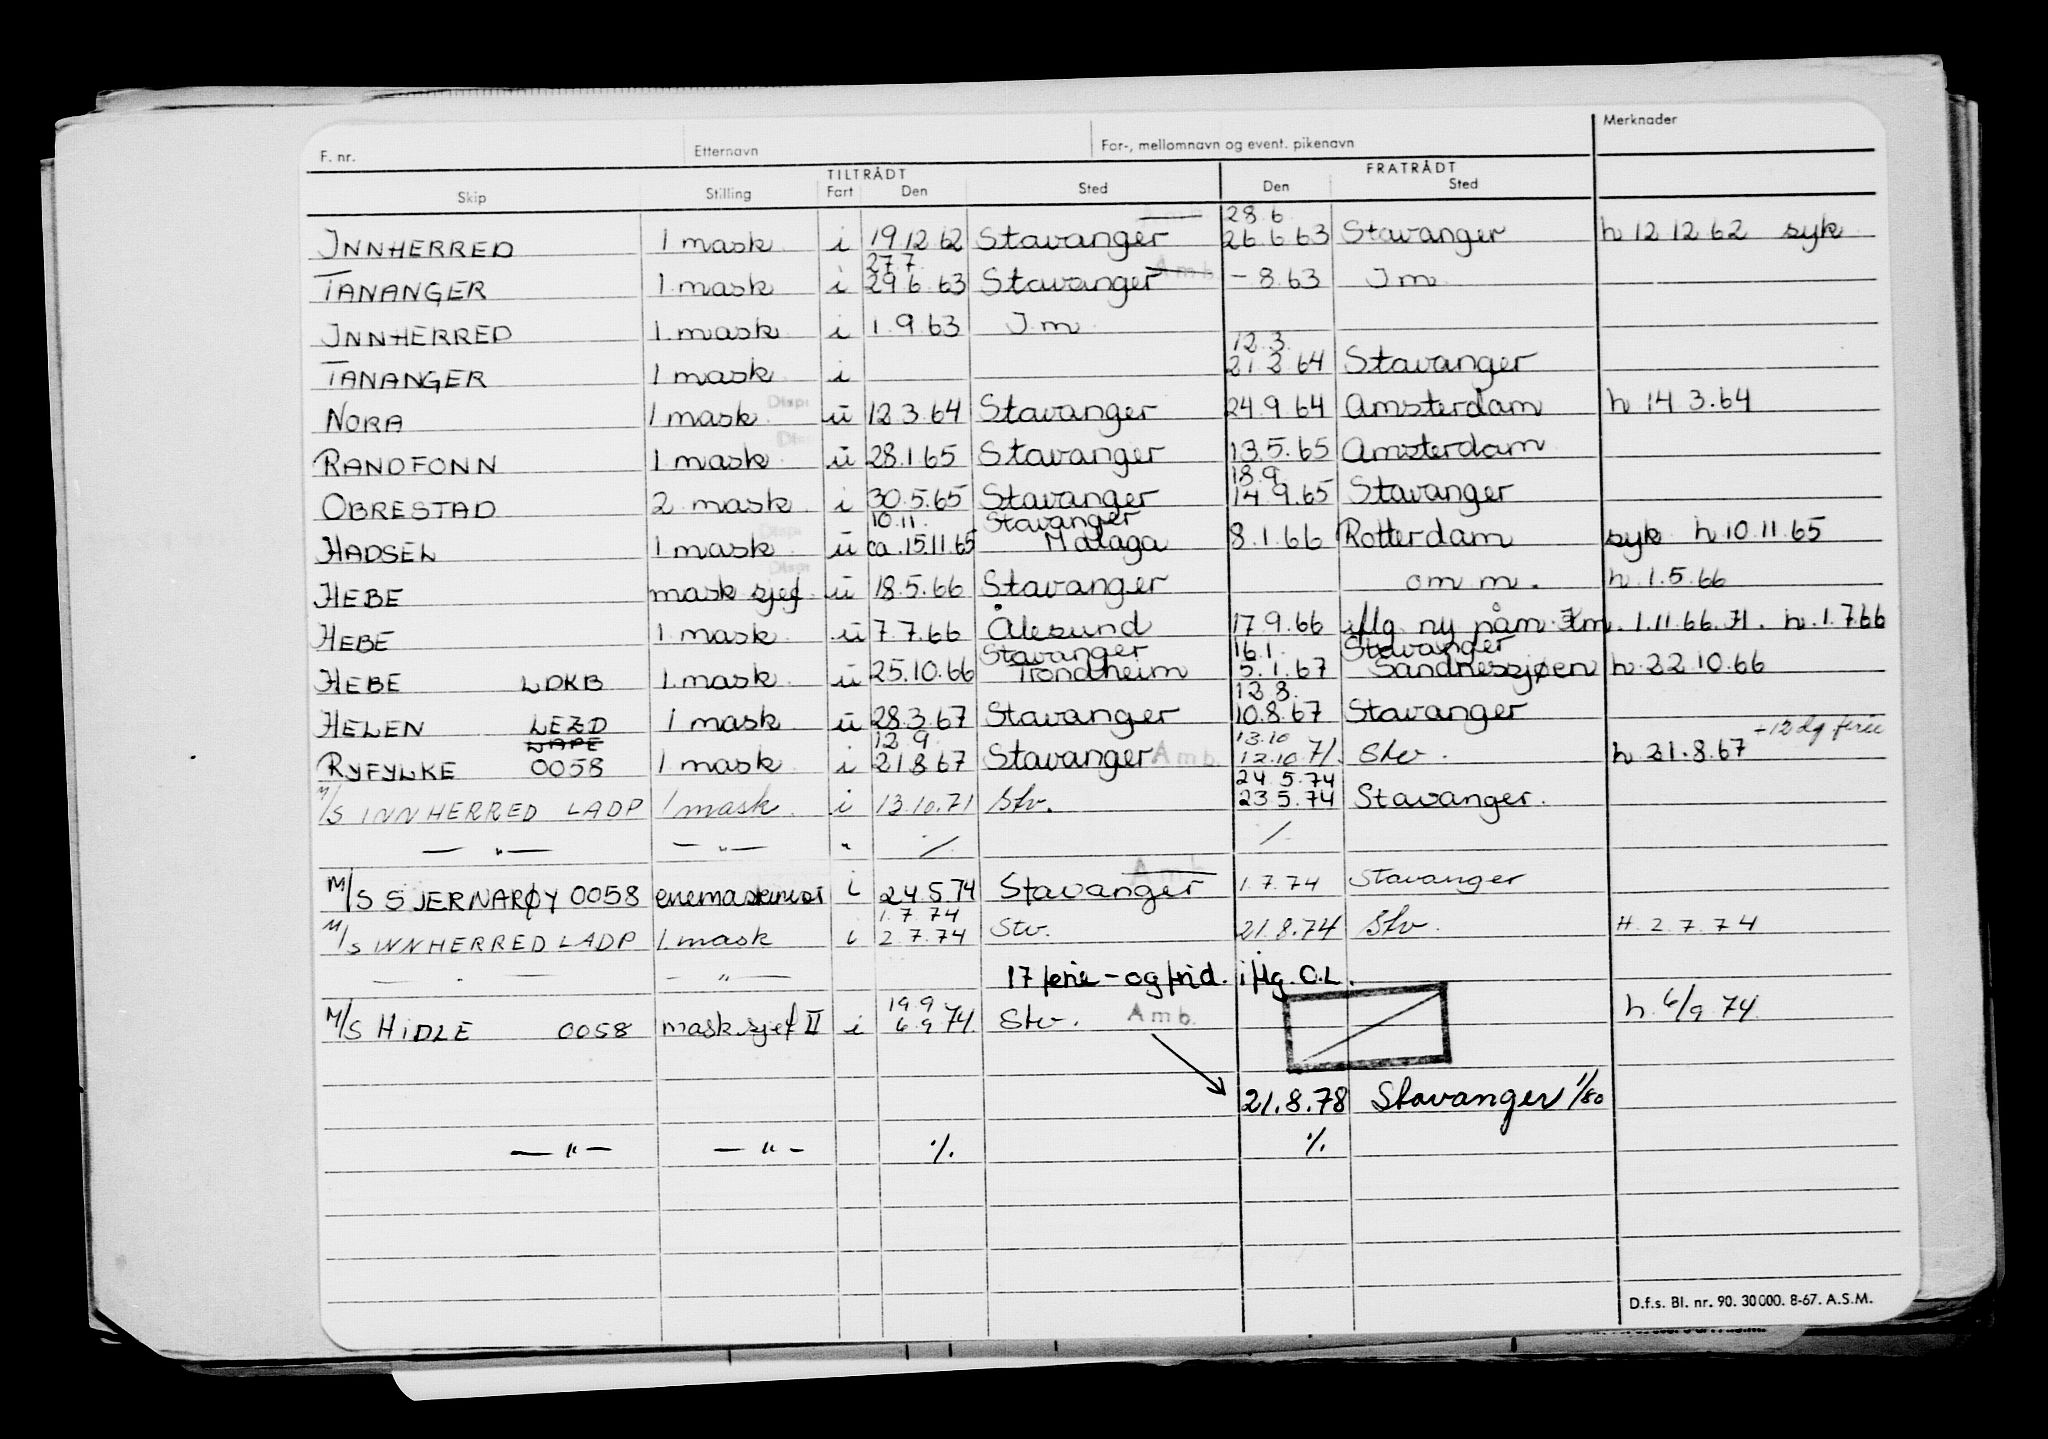 F. nr. Etternavn For-, mellomnavn og event. pikenavn Merknader
TILTRÅDT FRATRÅDT
Skip Stilling Fart Den Sted Den Sted
28.6
INNHERRED 1 mask i 19.12.62 Stavanger 26.6.63 Stavanger h 12 12 62 syk
27.7. Amb
TANANGER 1 mask i 29.6.63 Stavanger - 8.63 I m
INNHERRED 1 mask i 1.9.63 I m
12.3.
TANANGER 1 mask i 21.2.64 Stavanger
Disp
NORA 1 mask ü 12.3.64 Stavanger 24.9.64 Amsterdam h 14 3.64
Disp
RANDFONN 1 mask ü 28.1.65 Stavanger 13.5.65 Amsterdam
18.9
OBRESTAD 2 mask i 30.5.65 Stavanger 14.9.65 Stavanger
Disp 10.11. Stavanger
HADSEL 1 mask ü ca. 15.11.65 Malaga 8.1.66 Rotterdam syk h 10.11.65
Disp
HEBE mask sjef ü 18.5.66 Stavanger om m. h. 1.5.66
HEBE 1 mask ü 7.7.66 Ålesund 17.9.66 iflg ny påm. Hm. 1.11.66. H. h. 1.7.66
Stavanger 16.1. Stavanger
HEBE LDKB 1 mask ü 25.10.66 Trondheim 5.1.67 Sandnessjøen h 22.10.66
12.8.
HELEN LEZD 1 mask ü 28.3.67 Stavanger 10.8.67 Stavanger
LAPE 12.9. 13.10 +12 dg ferie
RYFYLKE 0058 1 mask i 21.8.67 Stavanger Amb. 12.10.71. Stv. h 21.8.67
24 5.74
M/S INNHERRED LADP 1 mask. i 13.10.71 Stv. 23 5.74 Stavanger.
— " — — " — " ./. ./.
Amb
M/S SJERNARØY 0058 enemaskinist i 24.5.74 Stavanger 1.7.74 Stavanger
1.7.74
M/S INNHERRED LADP 1 mask i 2.7.74 Stv. 21.8.74 Stv. H. 2.7.74
— " — 17 ferie - og frid. iflg. O.L.
19.9
M/S HIDLE 0058 mask sjef II i 6.9.74. Stv. Amb. h. 6/9 74
21.8.78 Stavanger 1/80
— " — — " — ./. ./.
D.f.s. Bl. nr. 90. 30000. 8-67. A.S.M.